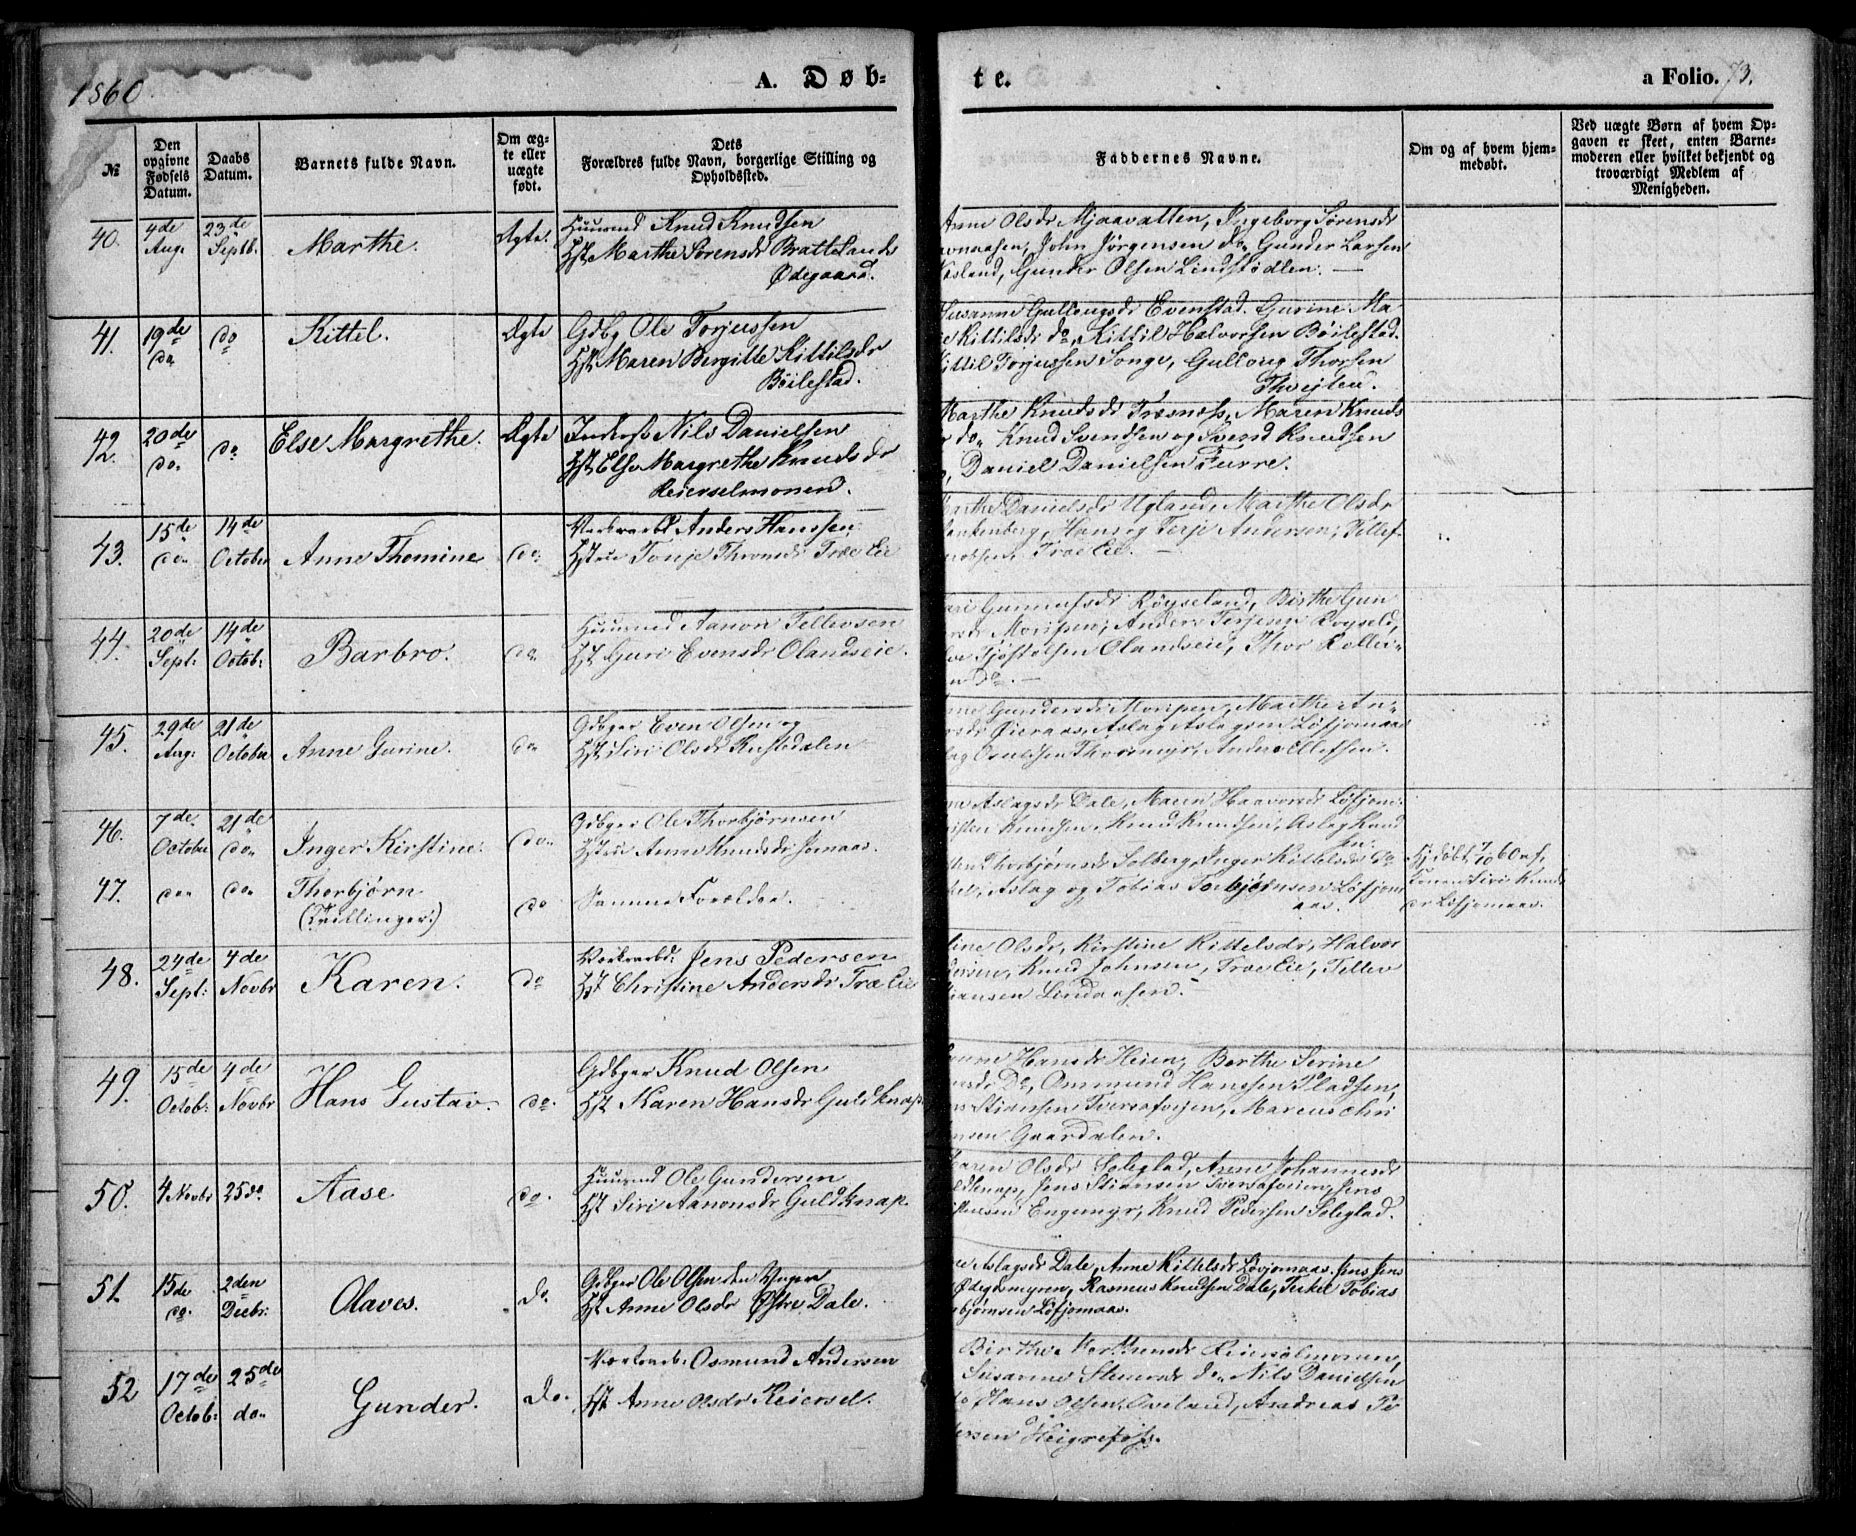 1860
A. Døb-
te.
a Folio. 73.
№
Den opgivne Fødsels Datum.
Daabs Datum.
Barnets fulde Navn.
Om ægte eller uægte født.
Dets Forældres fulde Navn, borgerlige Stilling og Opholdssted.
Faddernes Navne.
Om og af hvem hjemmedøbt.
Ved uægte Børn af hvem Opgaven er skeet, enten Barnemoderen eller hvilket bekjendt og troværdigt Medlem af Menigheden.
40. 4de Aug. 23de Septb. Marthe. Ægte. Huusmd Knud Knudsen
Hst Marthe Sørensdr Brattelands
Ødegaard.
Anne Olsdr Mjaavatten, Ingeborg Sørensdr
John Jørgensen do, Gunder Larsen
Gunder Olsen Lindstødlen.
41. 19de do do Kittel. Ægte Gdbg Ole Torjussen
Hst Maren Bergitte Kittilsdr
Bøilestad.
Susanne Gullougsdr Evenstad. Gurine Ma-
Kittilsdr do, Kittil Halvorsen Bøilestad.
Kittil Torjussen Songe, Gulloug Thorsen
42. 20de do do Else Margrethe. Ægte Inderst Nils Danielsen
Hst Else Margrethe Knudsdr
Reierselmonen.
Marthe Knudsdr Træsnæss, Maren Knuds
do, Knud Svendsen og Svend Knudsen
Daniel Danielsen Furre.
43. 15de do 14de October Anne Thomine do Anders Hanssen
Tonje Thomsdr Træ Eie
Marthe Danielsdr Ugland, Marthe Olsdr
Hans og Terje Andersen, Tellef
Træ Eie.
44. 20de Sept: 14de Octob: Barbro. do Huusmd Aanon Tellevsen
Hst Guri Evensdr Olandseie.
Gunnufsdr Røyseland, Birthe Gun
Moripen, Anders Terjesen Røyseld,
Tjøstolsen Olandseie, Thor
do.
45. 29de Aug: 21de October Anne Gurine. do Gdbger Even Olsen og
Hst Siri Olsdr Rustedalen
Gundersdr Moripen, Marthe An-
Øieraas, Aslag Aslagsen Løfjomaas
Thormyr, Anders Ellefsen.
46. 7de October 21de do Inger Kirstine. do Gdbger Ole Thorbjørnsen
Hstru Anne Knudsdr Jomaas.
Aslagsdr Dale, Maren Haavorsdr Løfjom-
Knudsen, Knud Knudsen, Aslag Knud
sen.
47. do do Thorbjørn do Samme Forældre.
(Tvillinger.)
Thorbjørnsdr Solberg, Inger Kittelsdr do
Aslag og Tobias Torbjørnsen Løfjom
aas.
Hj. døbt 7/10 60 af
Konen Siri Knuds
dr Løfjomaas.
48. 24de Sept: 4de Novbr Karen. do Verksarbd: Jens Pedersen
Hst Christine Andersdr Træ Eie
Olsdr, Kirstine Kittelsdr, Halvor
Knud Johnsen, Træ Eie, Tellev
Lindaasen.
49. 15de Octob: 4de Novbr Hans Gustav. do. Gdbger Knud Olsen
Hst Karen Hansdr Guldknap.
Hansdr Heien, Berthe Serine
do, Ommund Hanssen Pladsen,
Stiansen Tversafveien, Marcus Chri
Gaardalen.
50. 4 Novbr 25 do Aase do. Huusmd Ole Gundersen
Hst Siri Aanonsdr Guldknap.
Karen Olsdr Soleglad, Anne Johannesdr
Jens Stiansen Tversafveien, Jens
Engemyr, Knud Pedersen Soleglad.
51. 15de do 2den Decbr: Olaves. Do Gdbger Ole Olsen den Yngre
Hst Anne Olsdr Østre Dale.
Aslagsdr Dale, Anne Kittelsdr Løvjomaas, Jens Jens
Ødegdsmyren, Rasmus Knudsen Dale, Terkel Tobias
Løfjomaas.
52 17de Octob: 25de do Gunder. Do. Osmund Andersen
Hst Anne Olsdr Reiersel.
Birthe Reierselmonen,
Susanne do Nils Danielsen
Hans Olsen Oveland, Andreas Pe
dersen Heigrefoss.